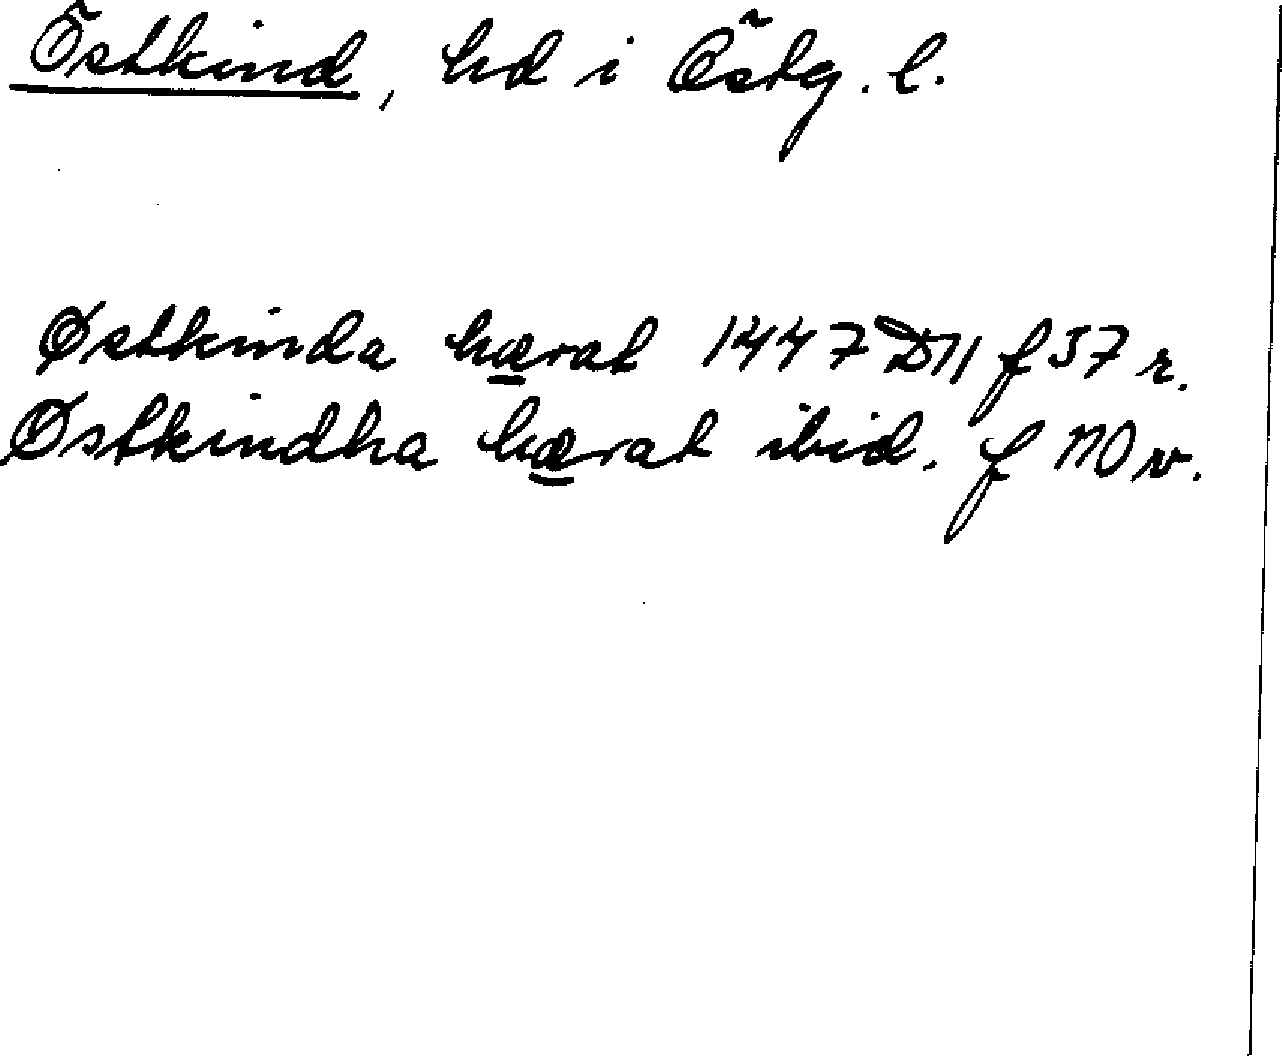 Östkind, hd i Östg. l.
Østkinda hærat 1447 D11 f 57 r.
Østkindha hærat ibid. f 110 v.